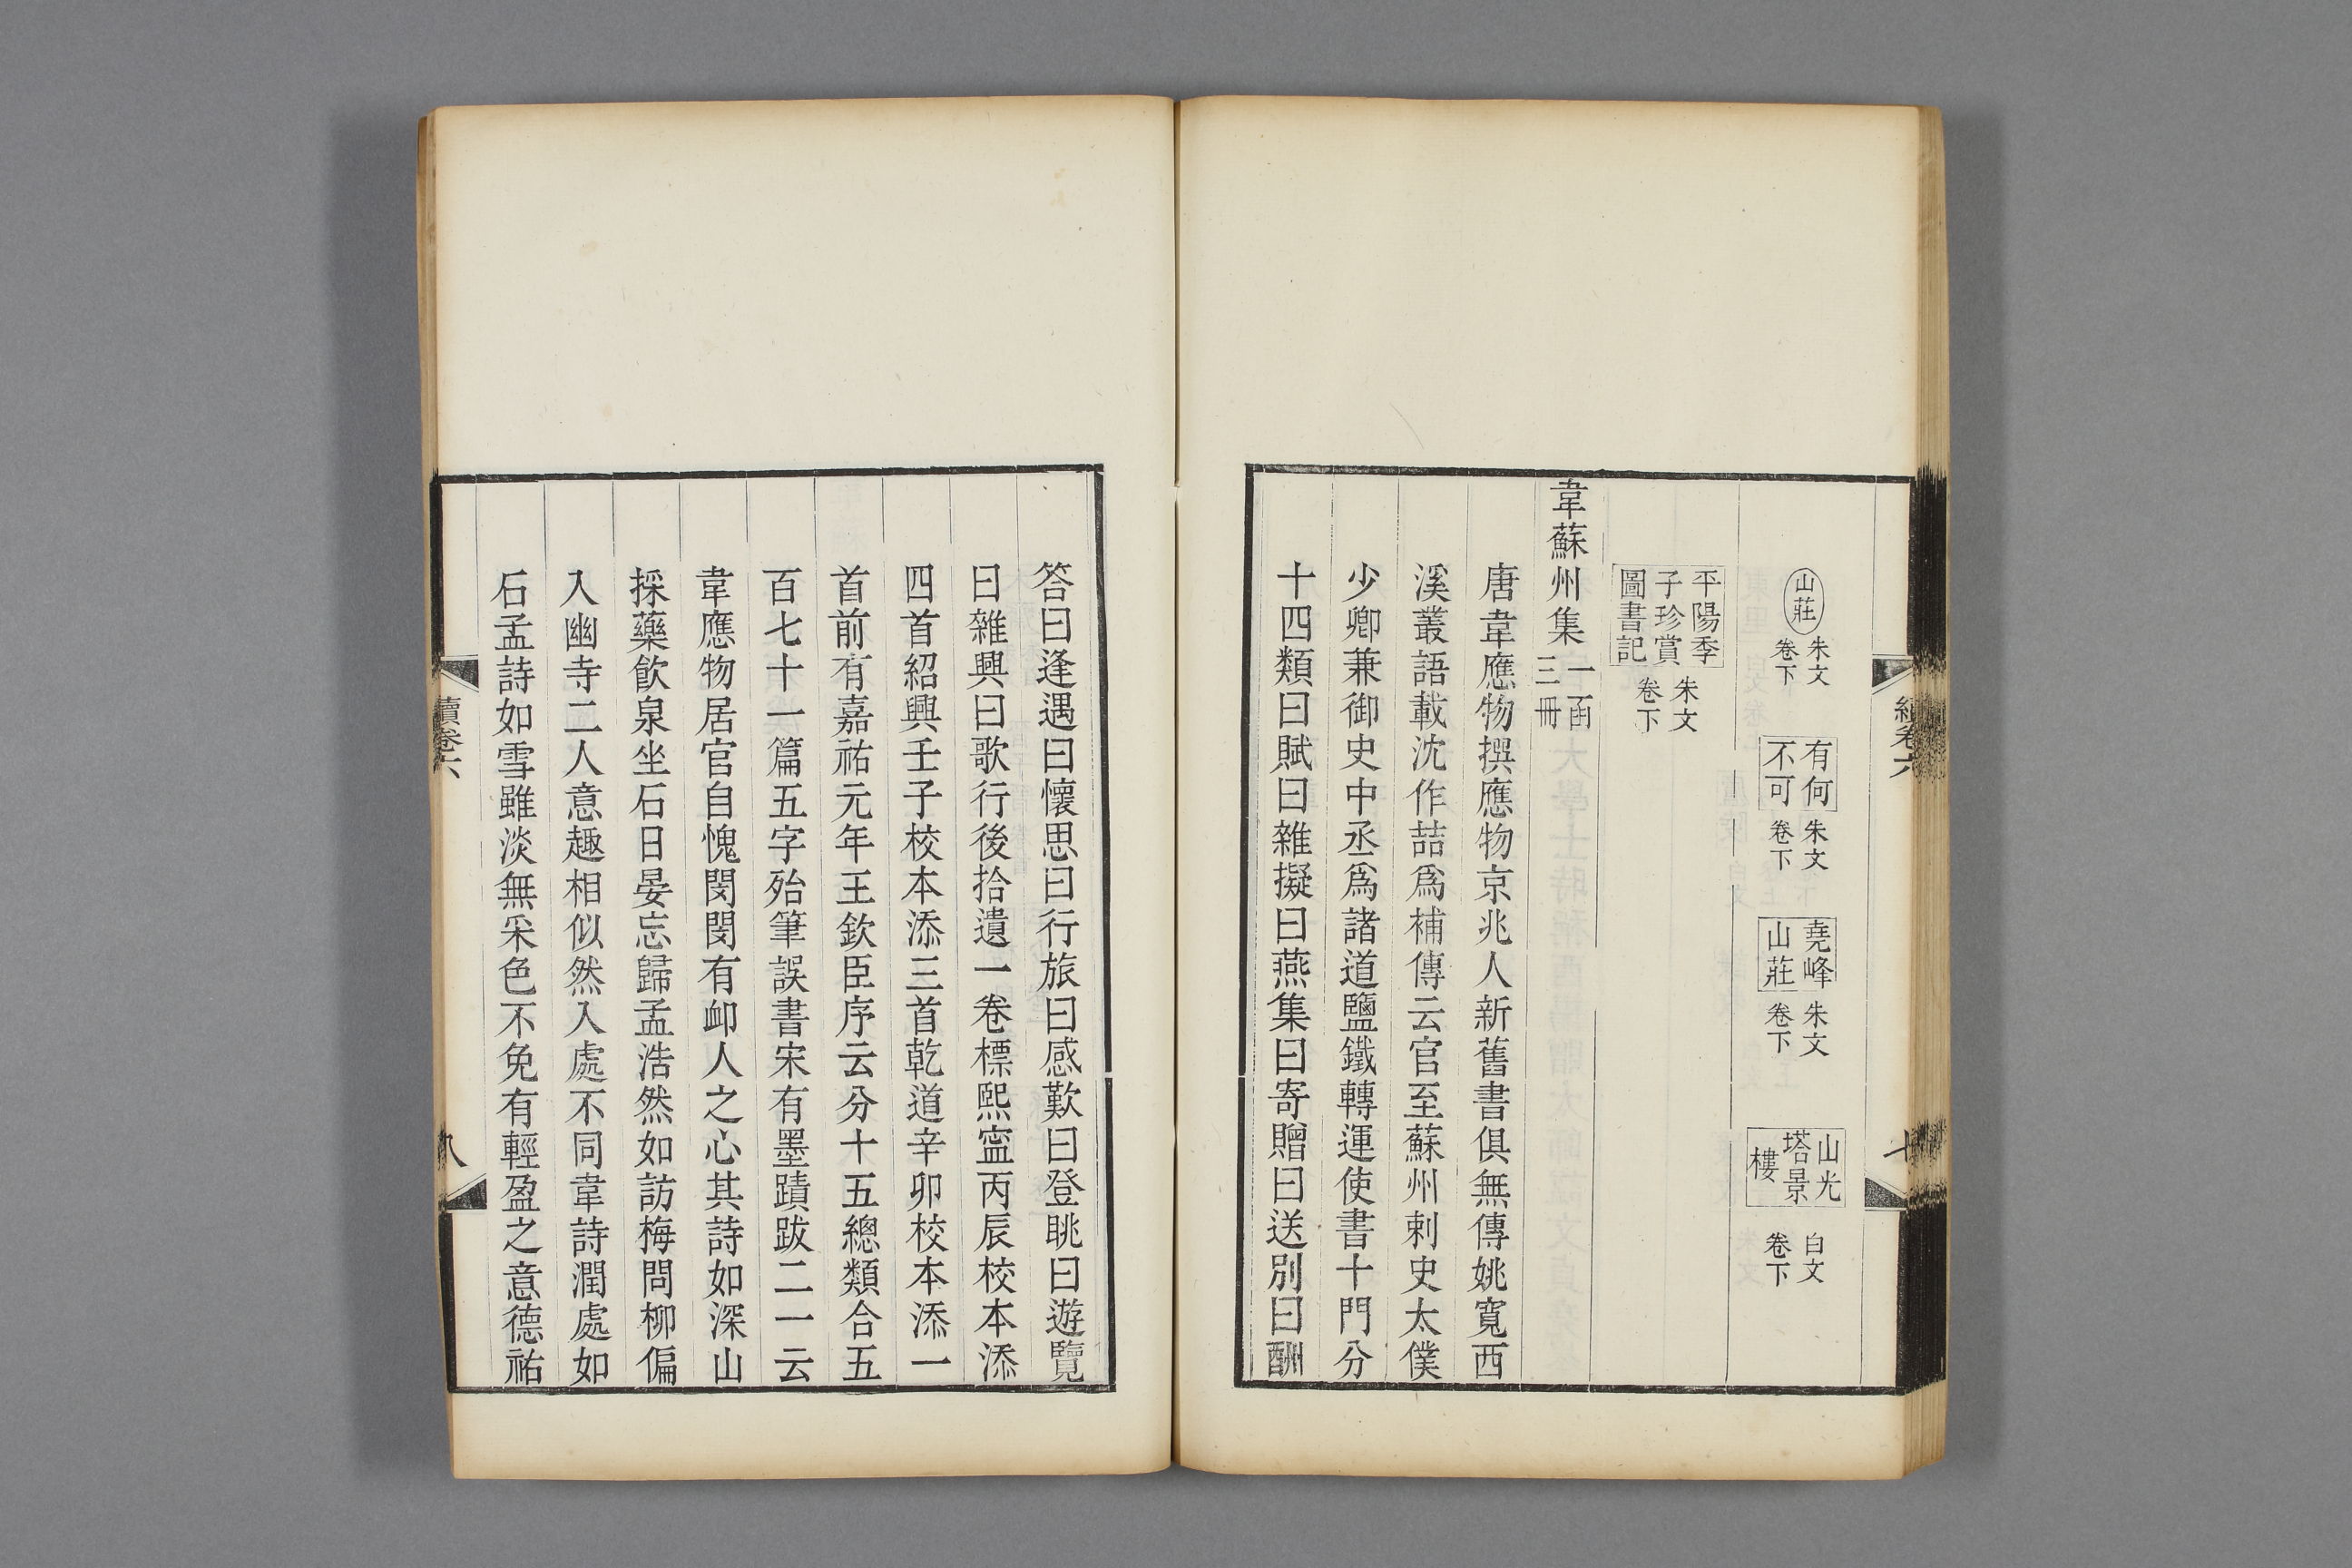 山莊 朱文卷下 有何不可 朱文卷下 堯峰山莊 朱文卷下 山光塔景樓 白文卷下
平陽季子珍賞圖書記 朱文卷下
韋蘇州集 一函三冊
唐韋應物撰應物京兆人新舊書俱無傳姚寬西
溪叢語載沈作喆爲補傳云官至蘇州刺史太僕
少卿兼御史中丞爲諸道鹽鐵轉運使書十門分
十四類曰賦曰雜擬曰燕集曰寄贈曰送別曰酬
續卷六 七
答曰逢遇曰懷思曰行旅曰感歎曰登眺曰遊覽
曰雜興曰歌行後拾遺一卷標熙寍丙辰校本添
四首紹興壬子校本添三首乾道辛卯校本添一
首前有嘉祐元年王欽臣序云分十五總類合五
百七十一篇五字殆筆誤書宋有墨蹟跋二一云
韋應物居官自愧閔閔有卹人之心其詩如深山
採藥飲泉坐石日晏忘歸孟浩然如訪梅問柳偏
入幽寺二人意趣相似然入處不同韋詩潤處如
石孟詩如雪雖淡無采色不免有輕盈之意德祐
續卷六 八